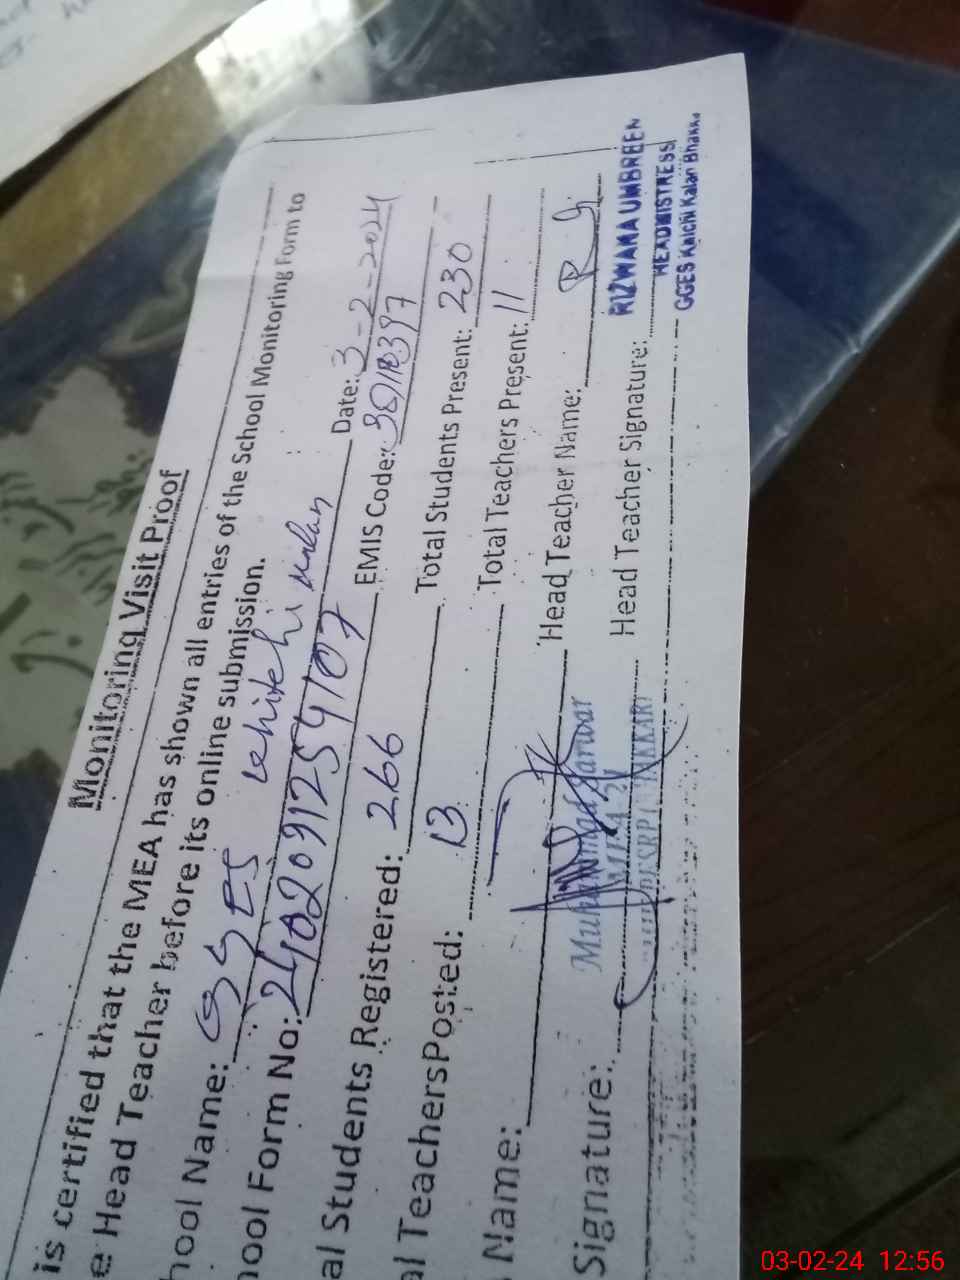 Monitoring Visit Proof
is certified that the MEA has shown all entries of the School Monitoring Form to
e Head Teacher before its online submission.
hool Name: GGES Khichi Kalan Date: 3-2-2024
hool Form No: 2402091254107 EMIS Code:
al Students Registered: 266 Total Students Present: 230
al Teachers Posted: 13 Total Teachers Present: 11
Name: Head Teacher Name:
Muhammad Sarwar
RIZWANA UMBREEN
Signature: Head Teacher Signature:
HEADMISTRESS
GGES Khichi Kalan Bhakkar
03-02-24 12:56